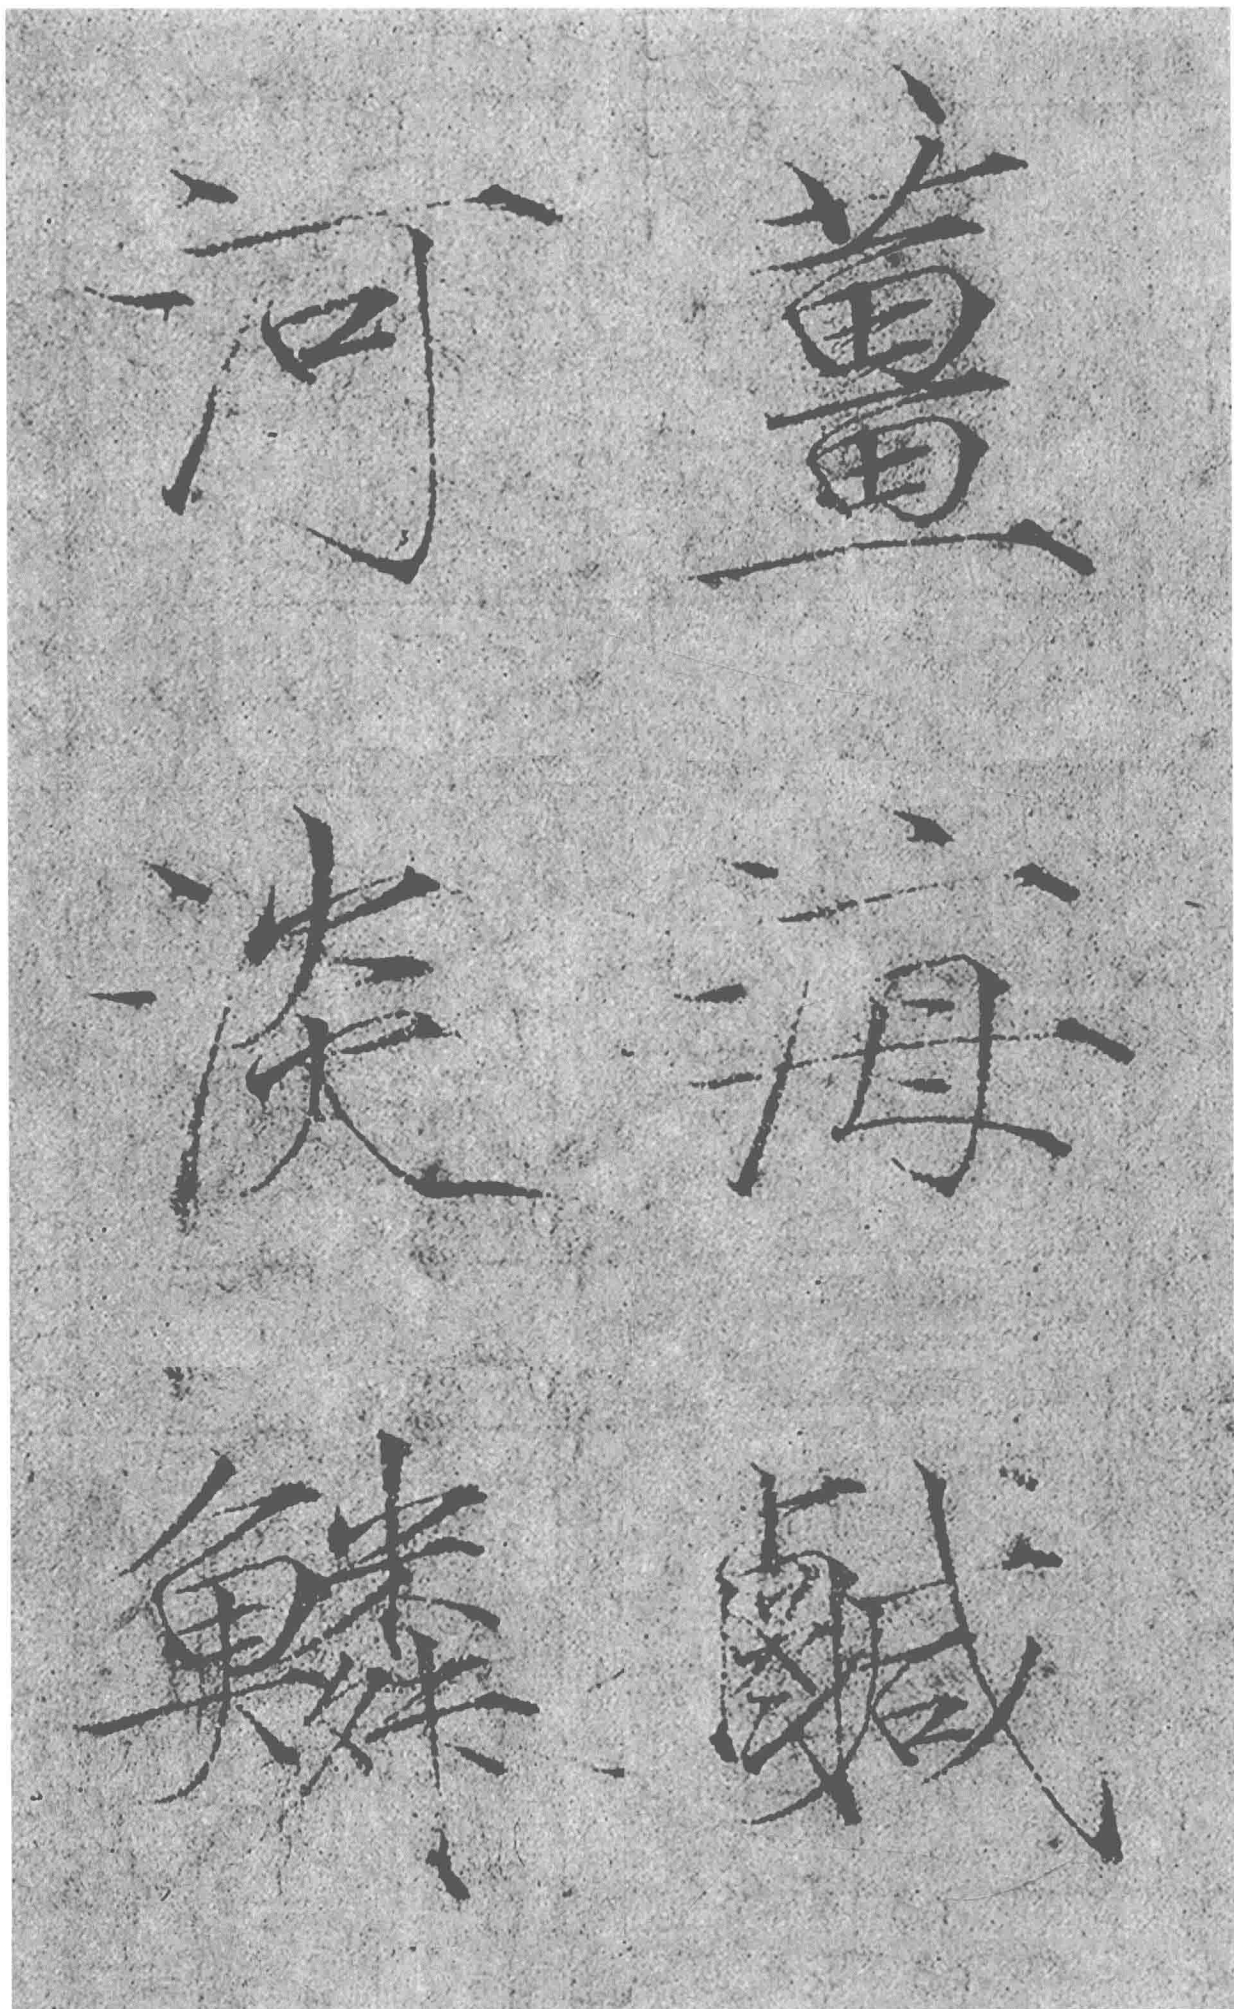 薑海鹹
河淡鱗